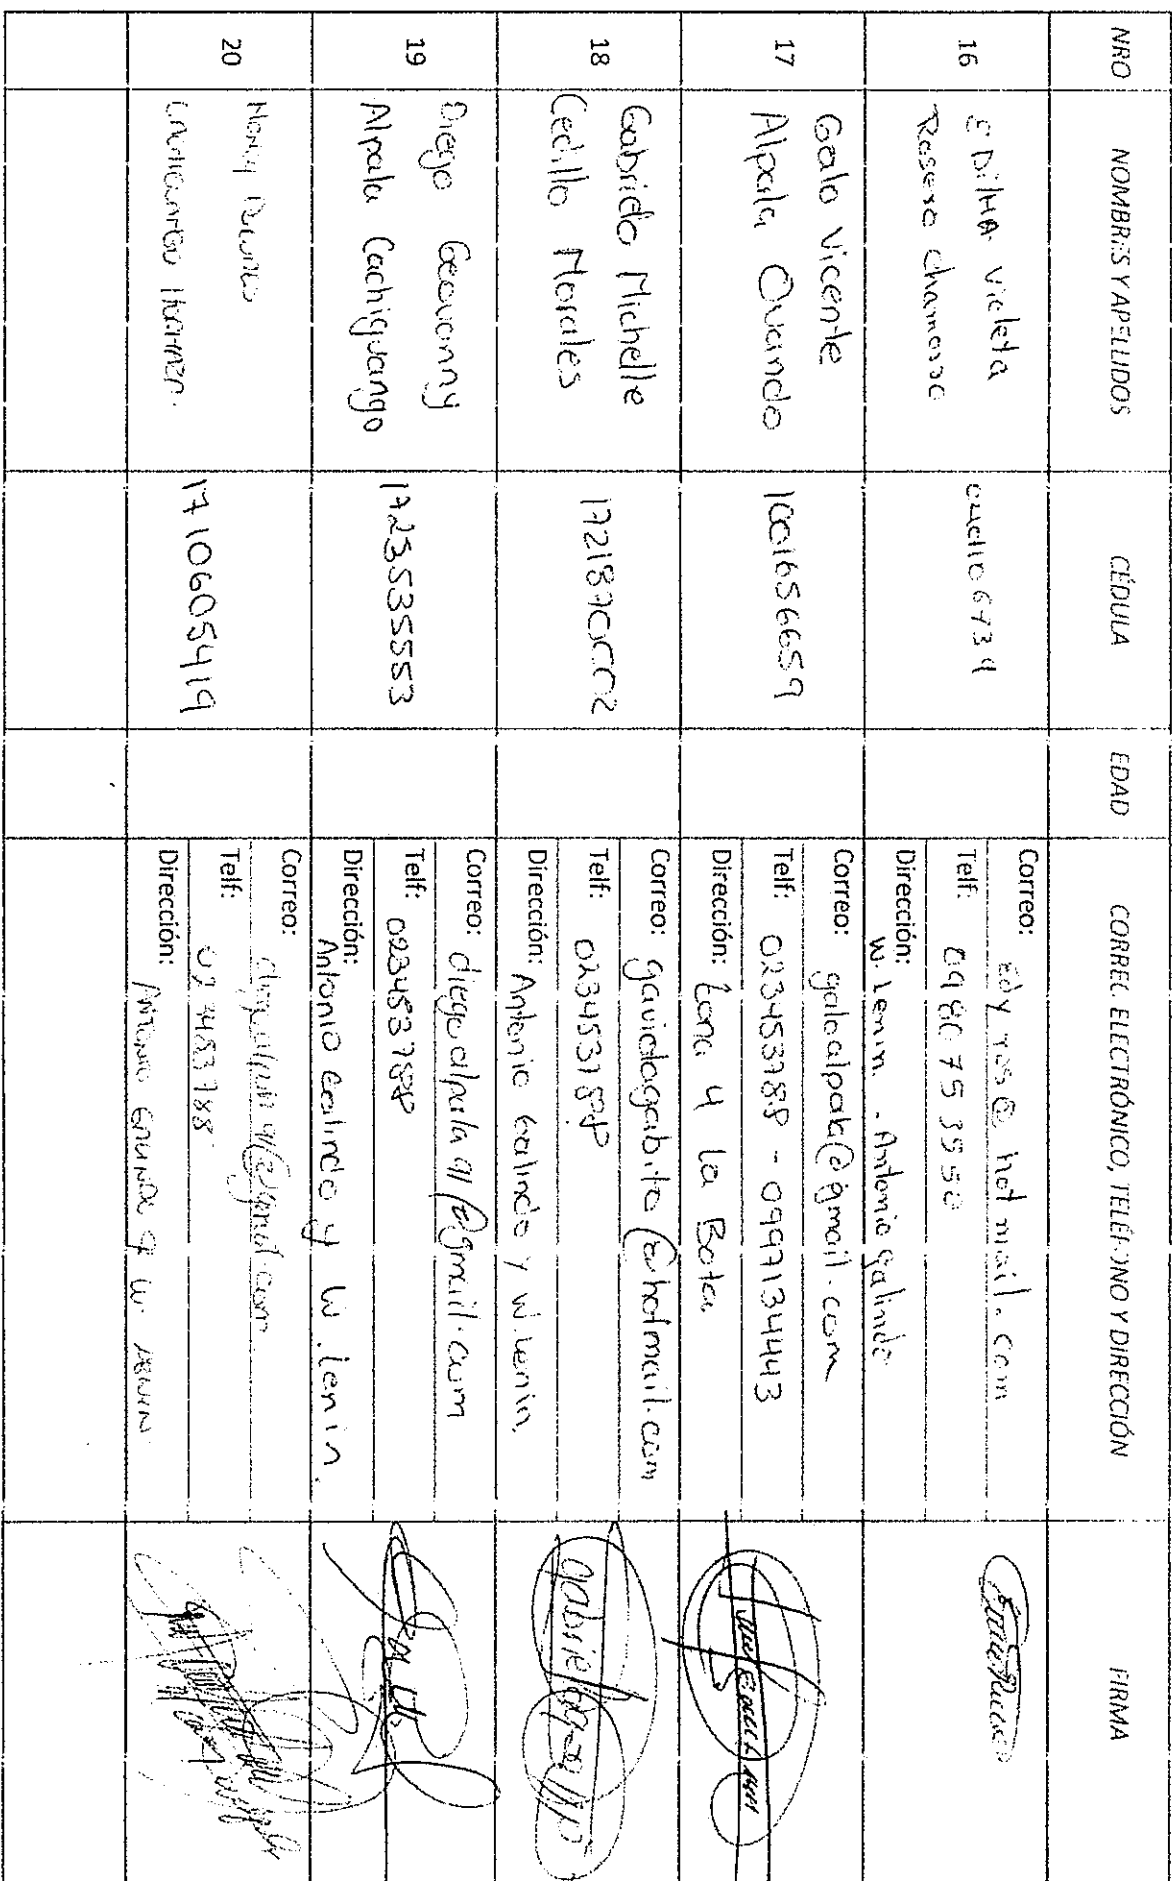 NRO NOMBRES Y APELLIDOS CÉDULA EDAD CORREO ELECTRÓNICO, TELÉFONO Y DIRECCIÓN FIRMA
16
Violeta
Rosero Chamorro
Correo: edy ros@hotmail.com
Telf:
Dirección:
W. Lenin. - Antonio galindo
17
Galo Vicente
Alpala Ovando
1001656659
Correo: galoalpala@gmail.com
Telf: 023453788 - 0997134443
Dirección: Zona 4 la Bota
18
Gabriela Michelle
Cedillo Morales
1721870002
Correo: gaviotagabita@hotmail.com
Telf: 023453788
Dirección: Antonio Galindo y W. Lenin.
19
Diego Geovanny
Alpala Cachiguango
1723535553
Correo: diegoalpala91@gmail.com
Telf: 023453788
Dirección:
Antonio Galindo y W. Lenin.
20
1710605419
Correo:
Telf: 023453788
Dirección: